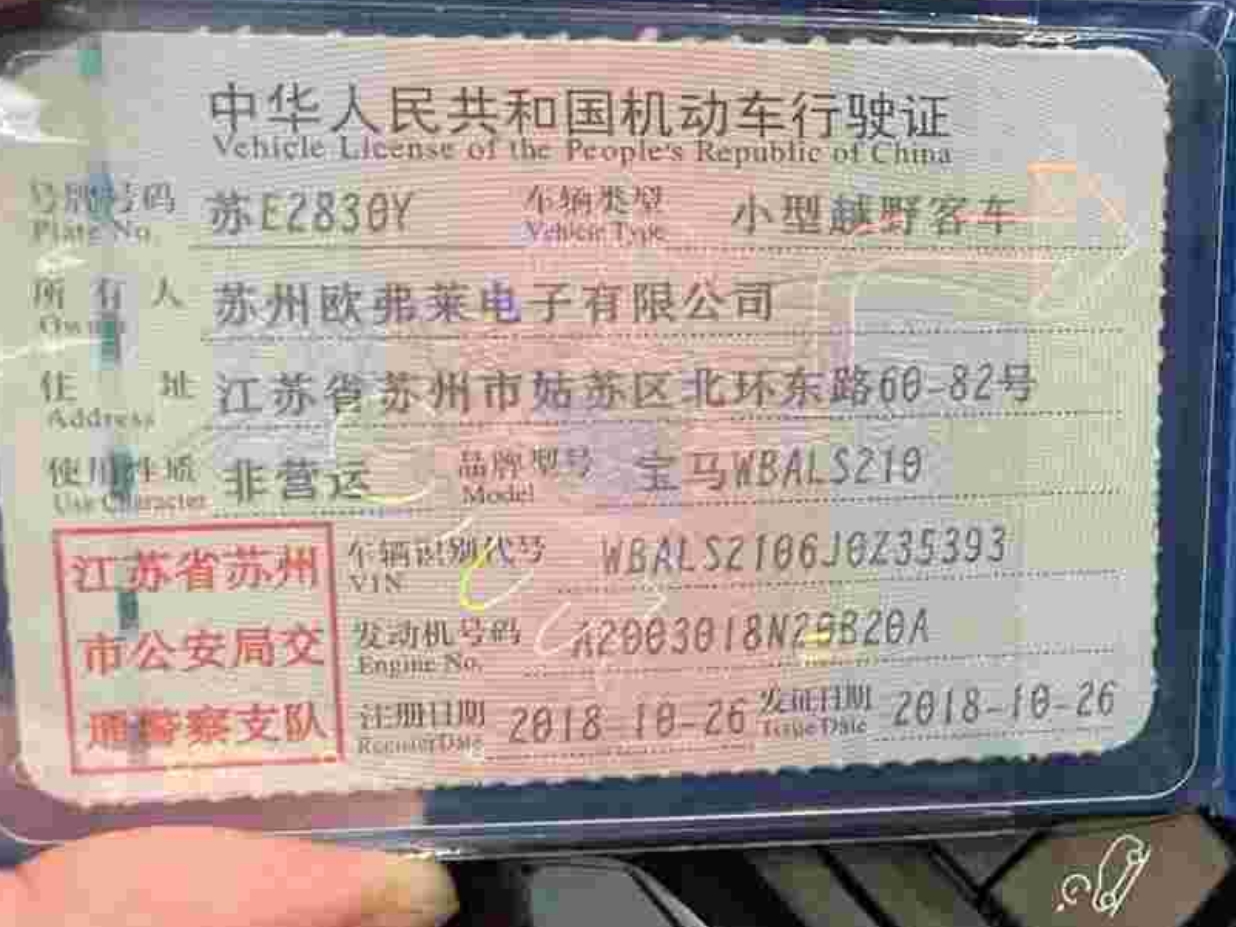 中华人民共和国机动车行驶证
Vehicle License of the People's Republic of China
号牌号码 苏E2830Y 车辆类型 小型越野客车
Plate No. Vehicle Type
所有人 苏州欧弗莱电子有限公司
Owner
住址 江苏省苏州市姑苏区北环东路60-82号
Address
使用性质 非营运 品牌型号 宝马WBALS210
Use Character Model
江苏省苏州
市公安局交
通警察支队
车辆识别代号 WBALS2106J0Z35393
VIN
发动机号码 A2003018N20B20A
Engine No.
注册日期 2018-10-26 发证日期 2018-10-26
Register Date Issue Date